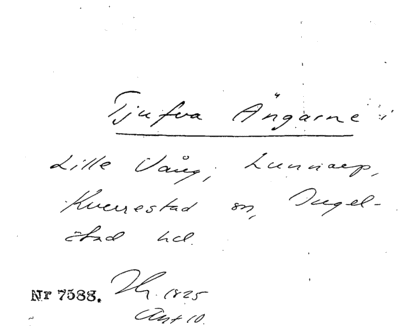 Tjufva Ängarne i
Lille Vång, Lunnarp,
Kverrestad sn, Ingel-
stad hd.
Nr 7588. 1825
Akt 10.